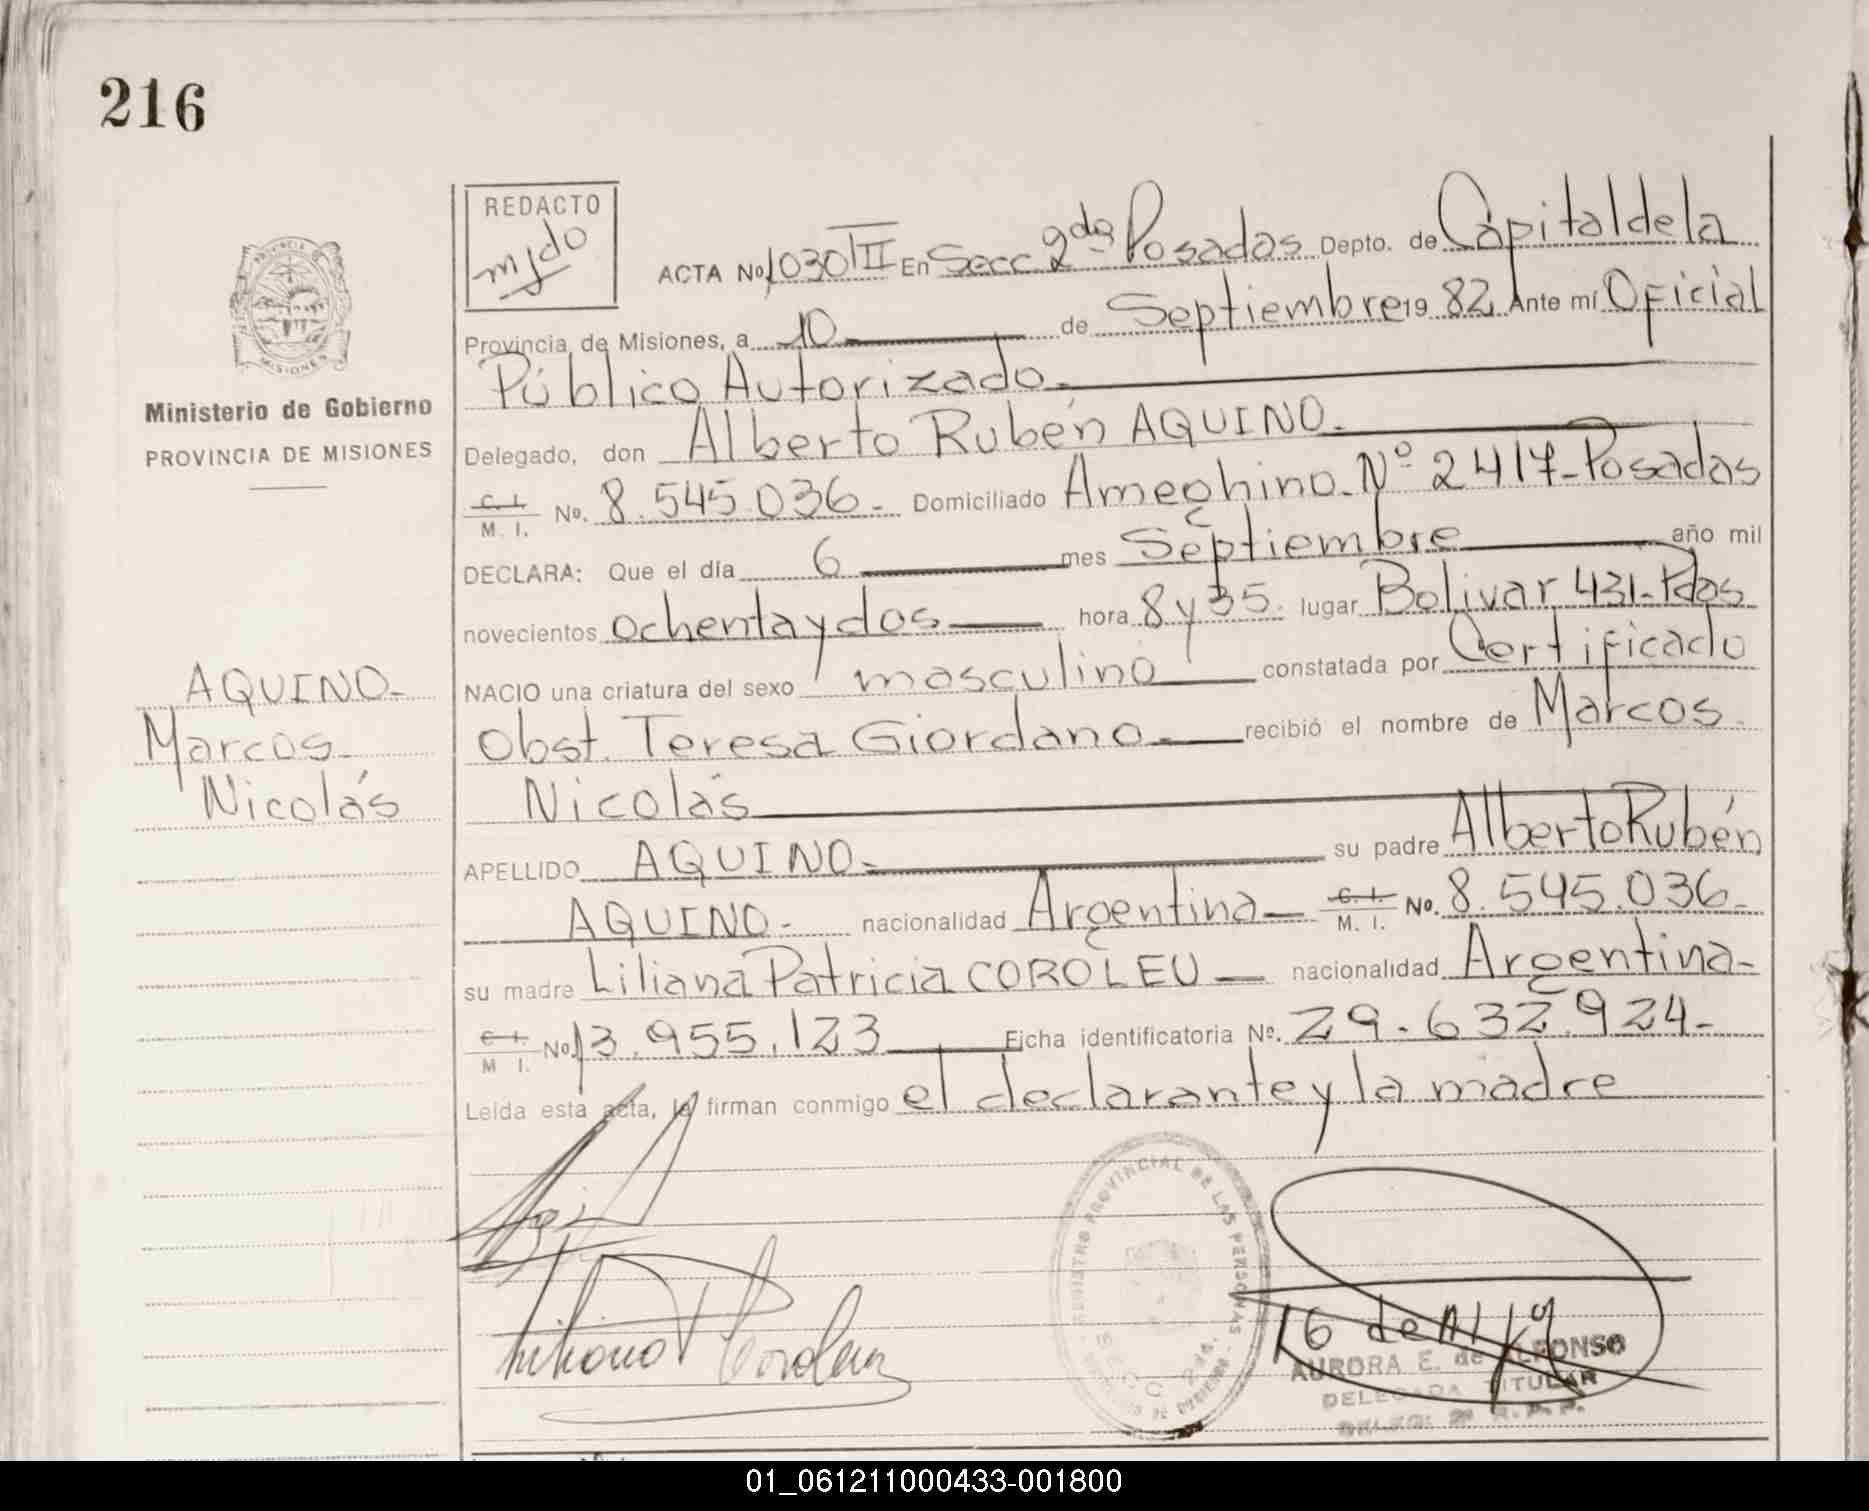 216
REDACTO
ACTA No. 1030 III En Secc 2da Posadas Depto. de Capital de la
Provincia de Misiones, a 10 de Septiembre 19 82 Ante mí Oficial
Público Autorizado.
Delegado, don Alberto Rubén AQUINO.
C. I. M. I. No. 8.545.036. Domiciliado Ameghino Nº 2417-Posadas
DECLARA: Que el día 6 mes Septiembre año mil
novecientos ochenta y dos hora 8 y 35. lugar Bolivar 431-Pdas
NACIO una criatura del sexo masculino constatada por Certificado
Obst. Teresa Giordano recibió el nombre de Marcos
Nicolás
APELLIDO AQUINO su padre Alberto Rubén
AQUINO nacionalidad Argentina C. I. M. I. No. 8.545.036.
su madre Liliana Patricia COROLEU nacionalidad Argentina
C. I. M I. No. 13.955.123 Ficha identificatoria No. 29.632.924
Leída esta acta, la firman conmigo el declarante y la madre
PROVINCIA
MISIONES
Ministerio de Gobierno
PROVINCIA DE MISIONES
AQUINO
Marcos
Nicolás
REGISTRO PROVINCIAL DE LAS PERSONAS
SECC 2da.
AURORA E. de ALFONSO
DELEGADA TITULAR
DELEG. 2ª R.P.P.
01_061211000433-001800